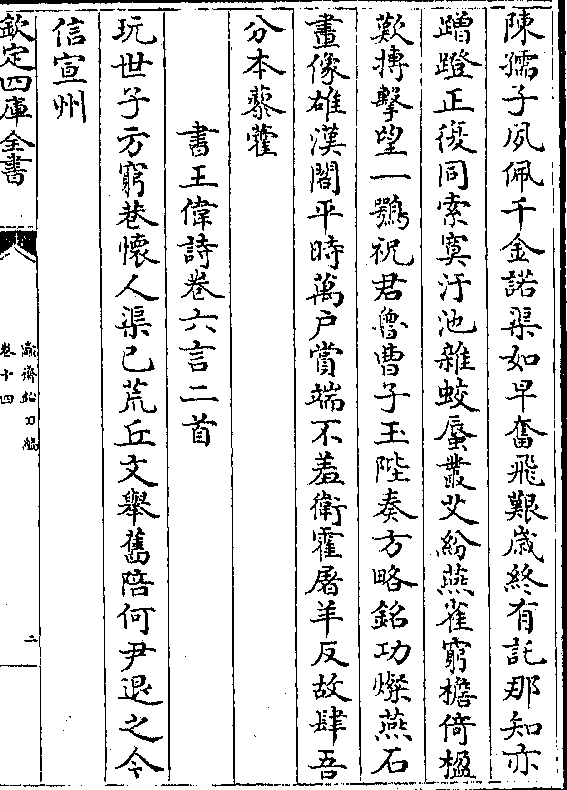 陳孺子夙佩千金諾渠如早奮飛艱歳終有託那知亦
蹭蹬正復同索寞汙池雜蛟蜃叢艾紛燕雀窮檐倚楹
歎搏擊望一鶚祝君魯曹子王陛奏方略銘功燦燕石
畫像雄漢閣平時萬戸賞端不羞衛霍屠羊反故肆吾
分本藜藿
書王偉詩卷六言二首
玩世子方窮巷懷人渠已荒丘文舉舊陪何尹退之今
信宣州
欽定四庫全書
瀛齋鉛刀編
卷十四
二